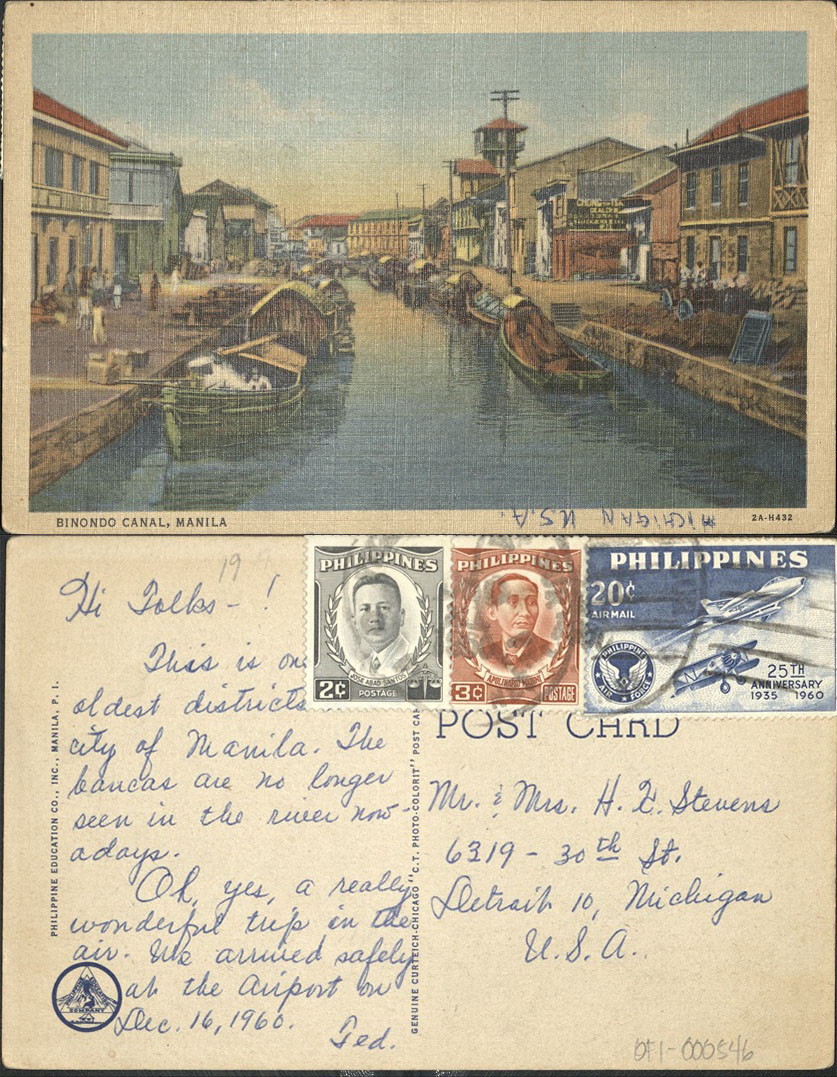 CHONG
BINONDO CANAL, MANILA
MICHIGAN U.S.A.
2A-H432
19
Hi Folks - !
This is on
oldest districts
city of Manila. The
bancas are no longer
seen in the river now-
adays.
Oh, yes, a really
wonderful trip in the
air. We arrived safely
at the airport on
Dec. 16, 1960.
Ted.
PHILIPPINE EDUCATION CO., INC., MANILA, P. I.
COMPANY
GENUINE CURTEICH-CHICAGO "C.T. PHOTO-COLORIT" POST CAR
PHILIPPINES
JOSE ABAD SANTOS
2¢
POSTAGE
PHILIPPINES
APOLINARIO MABINI
3¢
POSTAGE
PHILIPPINES
20¢
AIR MAIL
PHILIPPINE
AIR FORCE
25TH
ANNIVERSARY
1935 1960
POST CARD
Mr. & Mrs. H. G. Stevens
6319 - 30th St.
Detroit 10, Michigan
U. S. A.
OF1-000546